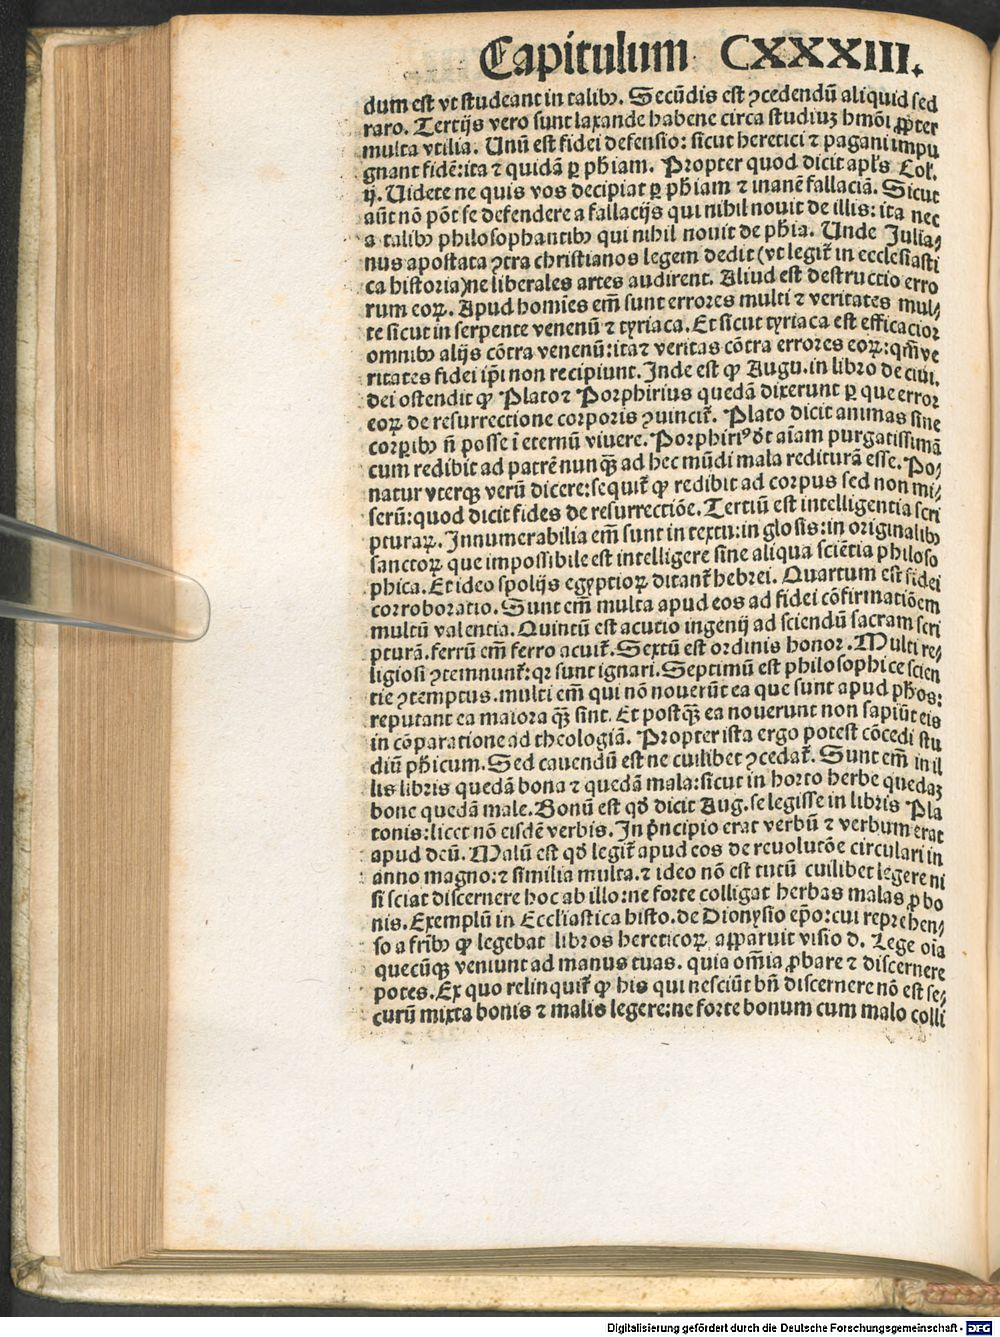 Capitulum CXXXIII.
dum est vt studeant in talibꝰ. Secūdis est ꝯcedendū aliquid sed
raro. Tertijs vero sunt laxande habene circa studiuꝫ hmōi ꝓpter
multa vtilia. Unū est fidei defensio: sicut heretici ⁊ pagani impu
gnant fidē: ita ⁊ quidā ꝑ phiam. Propter quod dicit apl's Col'.
ij. Uidete ne quis vos decipiat ꝑ phiam ⁊ inanē fallaciā. Sicut
aūt nō pōt se defendere a fallacijs qui nihil nouit de illis: ita nec
a talibꝰ philosophantibꝰ qui nihil nouit de phia. Unde Julia⸗
nus apostata ꝯtra christianos legem dedit (vt legit̄ in ecclesiasti
ca historia) ne liberales artes audirent. Aliud est destructio erro
rum eoꝝ. Apud homīes em̄ sunt errores multi ⁊ veritates mul⸗
te sicut in serpente venenū ⁊ tyriaca. Et sicut tyriaca est efficacior
omnibꝰ alijs cōtra venenū: ita ⁊ veritas cōtra errores eoꝝ: qm̄ ve
ritates fidei ip̄i non recipiunt. Inde est ꝙ Augu. in libro de ciui.
dei ostendit ꝙ Plato ⁊ Porphirius quedā dixerunt ꝑ que error
eoꝝ de resurrectione corporis ꝯuincit̄. Plato dicit animas sine
corꝑibꝰ n̄ posse ī eternū viuere. Porphiriꝰ dt̄ aīam purgatissimā
cum redibit ad patrē nunꝙ̄ ad hec mūdi mala rediturā esse. Po⸗
natur vterqꝫ verū dicere: sequit̄ ꝙ redibit ad corpus sed non mi⸗
serū: quod dicit fides de resurrectiōe. Tertiū est intelligentia scri
pturaꝝ. Innumerabilia em̄ sunt in textu: in glosis: in originalibꝰ
sanctoꝝ que impossibile est intelligere sine aliqua sciētia philoso
phica. Et ideo spolijs egyptioꝝ ditant̄ hebrei. Quartum est fidei
corroboratio. Sunt em̄ multa apud eos ad fidei cōfirmatiōem
multū valentia. Quintū est acutio ingenij ad sciendū sacram scri
pturā. ferrū em̄ ferro acuit̄. Sextū est ordinis honor. Multi re⸗
ligiosi ꝯtemnunt̄: qꝛ sunt ignari. Septimū est philosophice scien
tie ꝯtemptus. multi em̄ qui nō nouerūt ea que sunt apud phos:
reputant ea maiora ꝙ̄ sint. Et postꝙ̄ ea nouerunt non sapiūt eis
in cōparatione ad theologiā. Propter ista ergo potest cōcedi stu
diū phicum. Sed cauendū est ne cuilibet ꝯcedat̄. Sunt em̄ in il
lis libris quedā bona ⁊ quedā mala: sicut in horto herbe quedaꝫ
bone quedā male. Bonū est qd̄ dicit Aug. se legisse in libris Pla
tonis: licet nō eisdē verbis. In pncipio erat verbū ⁊ verbum erat
apud deū. Malū est qd̄ legit̄ apud eos de reuolutōe circulari in
anno magno: ⁊ similia multa. ⁊ ideo nō est tutū cuilibet legere ni
si sciat discernere hoc ab illo: ne forte colligat herbas malas ꝓ bo
nis. Exemplū in Ecclīastica histo. de Dionysio ep̄o: cui reprehen⸗
so a fribꝰ ꝙ legebat libros hereticoꝝ apparuit visio d. Lege oīa
quecūqꝫ veniunt ad manus tuas. quia om̄ia ꝓbare ⁊ discernere
potes. Ex quo relinquit̄ ꝙ his qui nesciūt bn̄ discernere nō est se⸗
curū mixta bonis ⁊ malis legere: ne forte bonum cum malo colli
Digitalisierung gefördert durch die Deutsche Forschungsgemeinschaft - DFG